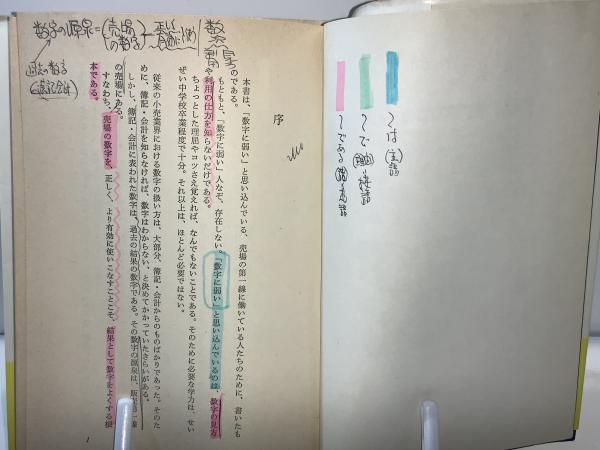 〜は 主語
〜で 理由 接続
〜である 結論 述語
数字の源泉=(売場の数字)―正しい
過去の数字
序
本書は、「数字に弱い」と思い込んでいる、売場の第一線に働いている人たちのために、書いたも
のである。
もともと、「数字に弱い」人なぞ、存在しない。「数字に弱い」と思い込んでいるのは、数字の見方
や利用の仕方を知らないだけである。
ちょっとした理屈やコツさえ覚えれば、なんでもないことである。そのために必要な学力は、せい
ぜい中学校卒業程度で十分。それ以上は、ほとんど必要ではない。
従来の小売業界における数字の扱い方は、大部分、簿記・会計からのものばかりであった。そのた
めに、簿記・会計を知らなければ、数字はわからない、と決めてかかっていたきらいがある。
しかし、簿記・会計に表われた数字は、過去の結果の数字である。その数字の源泉は、販売第一線
の売場にある。
すなわち、売場の数字を、正しく、より有効に使いこなすことこそ、結果として数字をよくする根
本である。
1